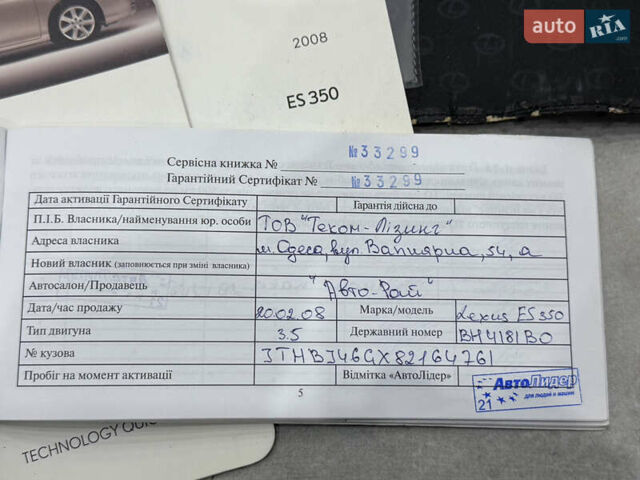 auto RIA.com
2008
ES 350
Сервісна книжка № №33299
Гарантійний Сертифікат № №33299
Дата активації Гарантійного Сертифікату Гарантія дійсна до
П.І.Б. Власника/найменування юр. особи ТОВ "Теком-Лізинг"
Адреса власника м. Одеса, вул. Вапняриа, 54, а
Новий власник (заповнюється при зміні власника)
Автосалон/Продавець "Авто-Рай"
Дата/час продажу 20.02.08 Марка/модель Lexus ES350
Тип двигуна 3.5 Державний номер BH4181BO
№ кузова JTHBJ46GX82164761
Пробіг на момент активації Відмітка «АвтоЛідер»
АвтоЛидер
для людей и машин
21
5
TECHNOLOGY